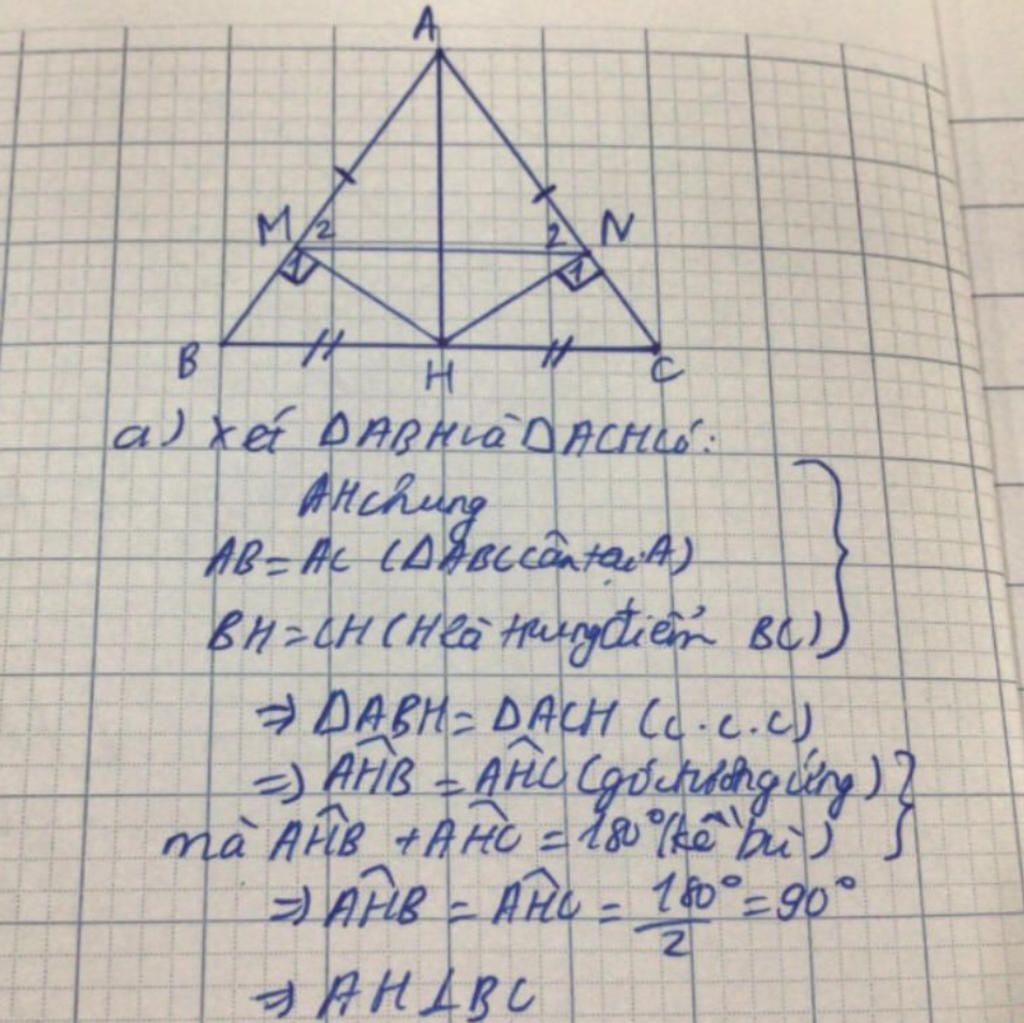 A
M 2 2 N
1 1
B H C
a) Xét ΔABH và ΔACH có:
AH chung
AB = AC (ΔABC cân tại A)
BH = CH (H là trung điểm BC)
⇒ ΔABH = ΔACH (c.c.c)
⇒ AĤB = AĤC (góc tương ứng)
mà AĤB + AĤC = 180° (kề bù)
⇒ AĤB = AĤC = 180°/2 = 90°
⇒ AH ⊥ BC